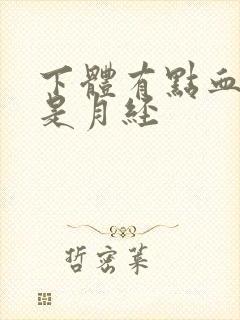 下體有點血
是月經
哲密葉